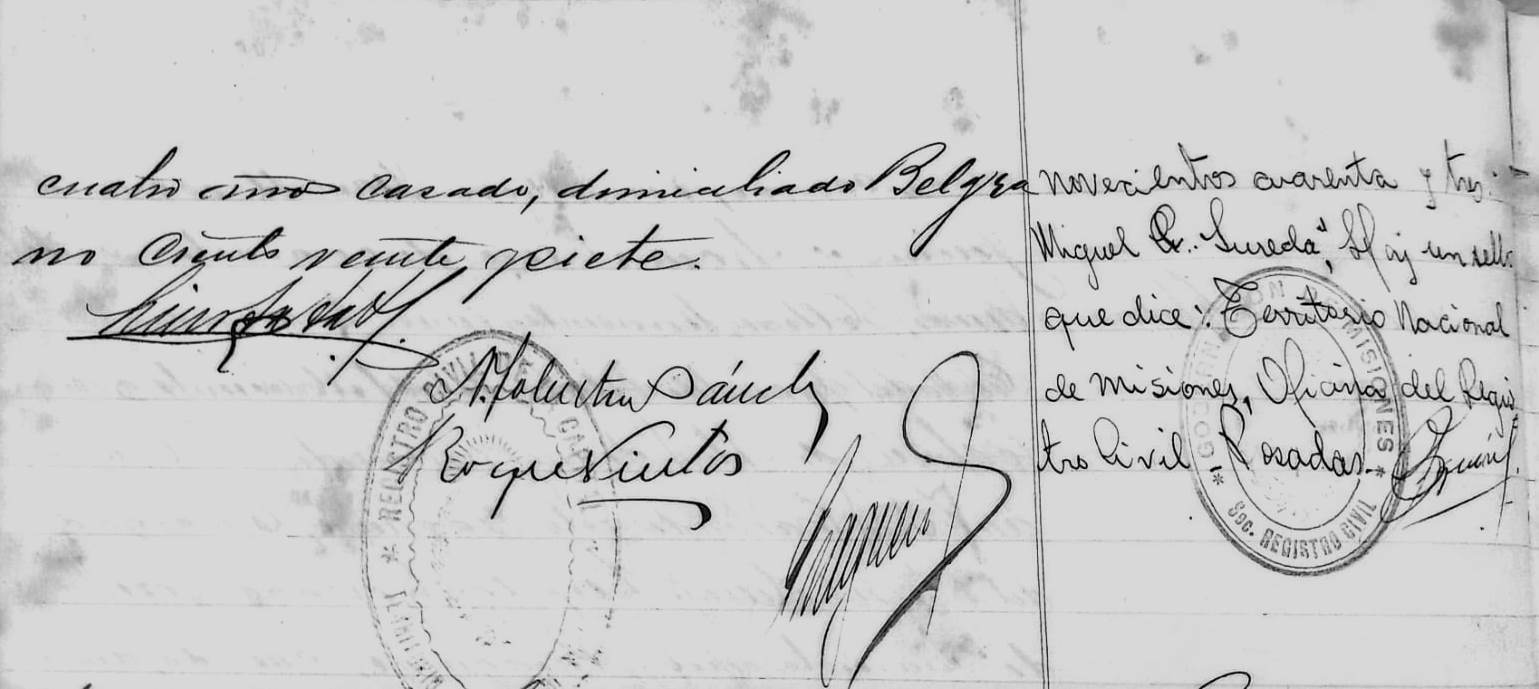 cuatro años casado, domiciliado Belgra
no ciento veinte y siete.
Sánch
Roque Vientos
novecientos cuarenta y tres.
Miguel Sureda", Hay un sello
que dice: Territorio Nacional
de Misiones, Oficina del Regis
tro Civil Posadas.
REGISTRO CIVIL
GOBERNACION MISIONES
SOC. REGISTRO CIVIL